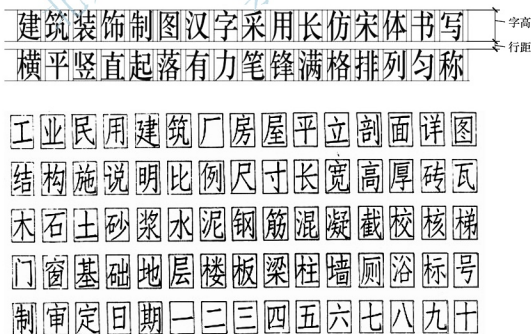 建筑装饰制图汉字采用长仿宋体书写
字高
横平竖直起落有力笔锋满格排列匀称
行距
工业民用建筑厂房屋平立剖面详图
结构施说明比例尺寸长宽高厚砖瓦
木石土砂浆水泥钢筋混凝截校核梯
门窗基础地层楼板梁柱墙厕浴标号
制审定日期一二三四五六七八九十